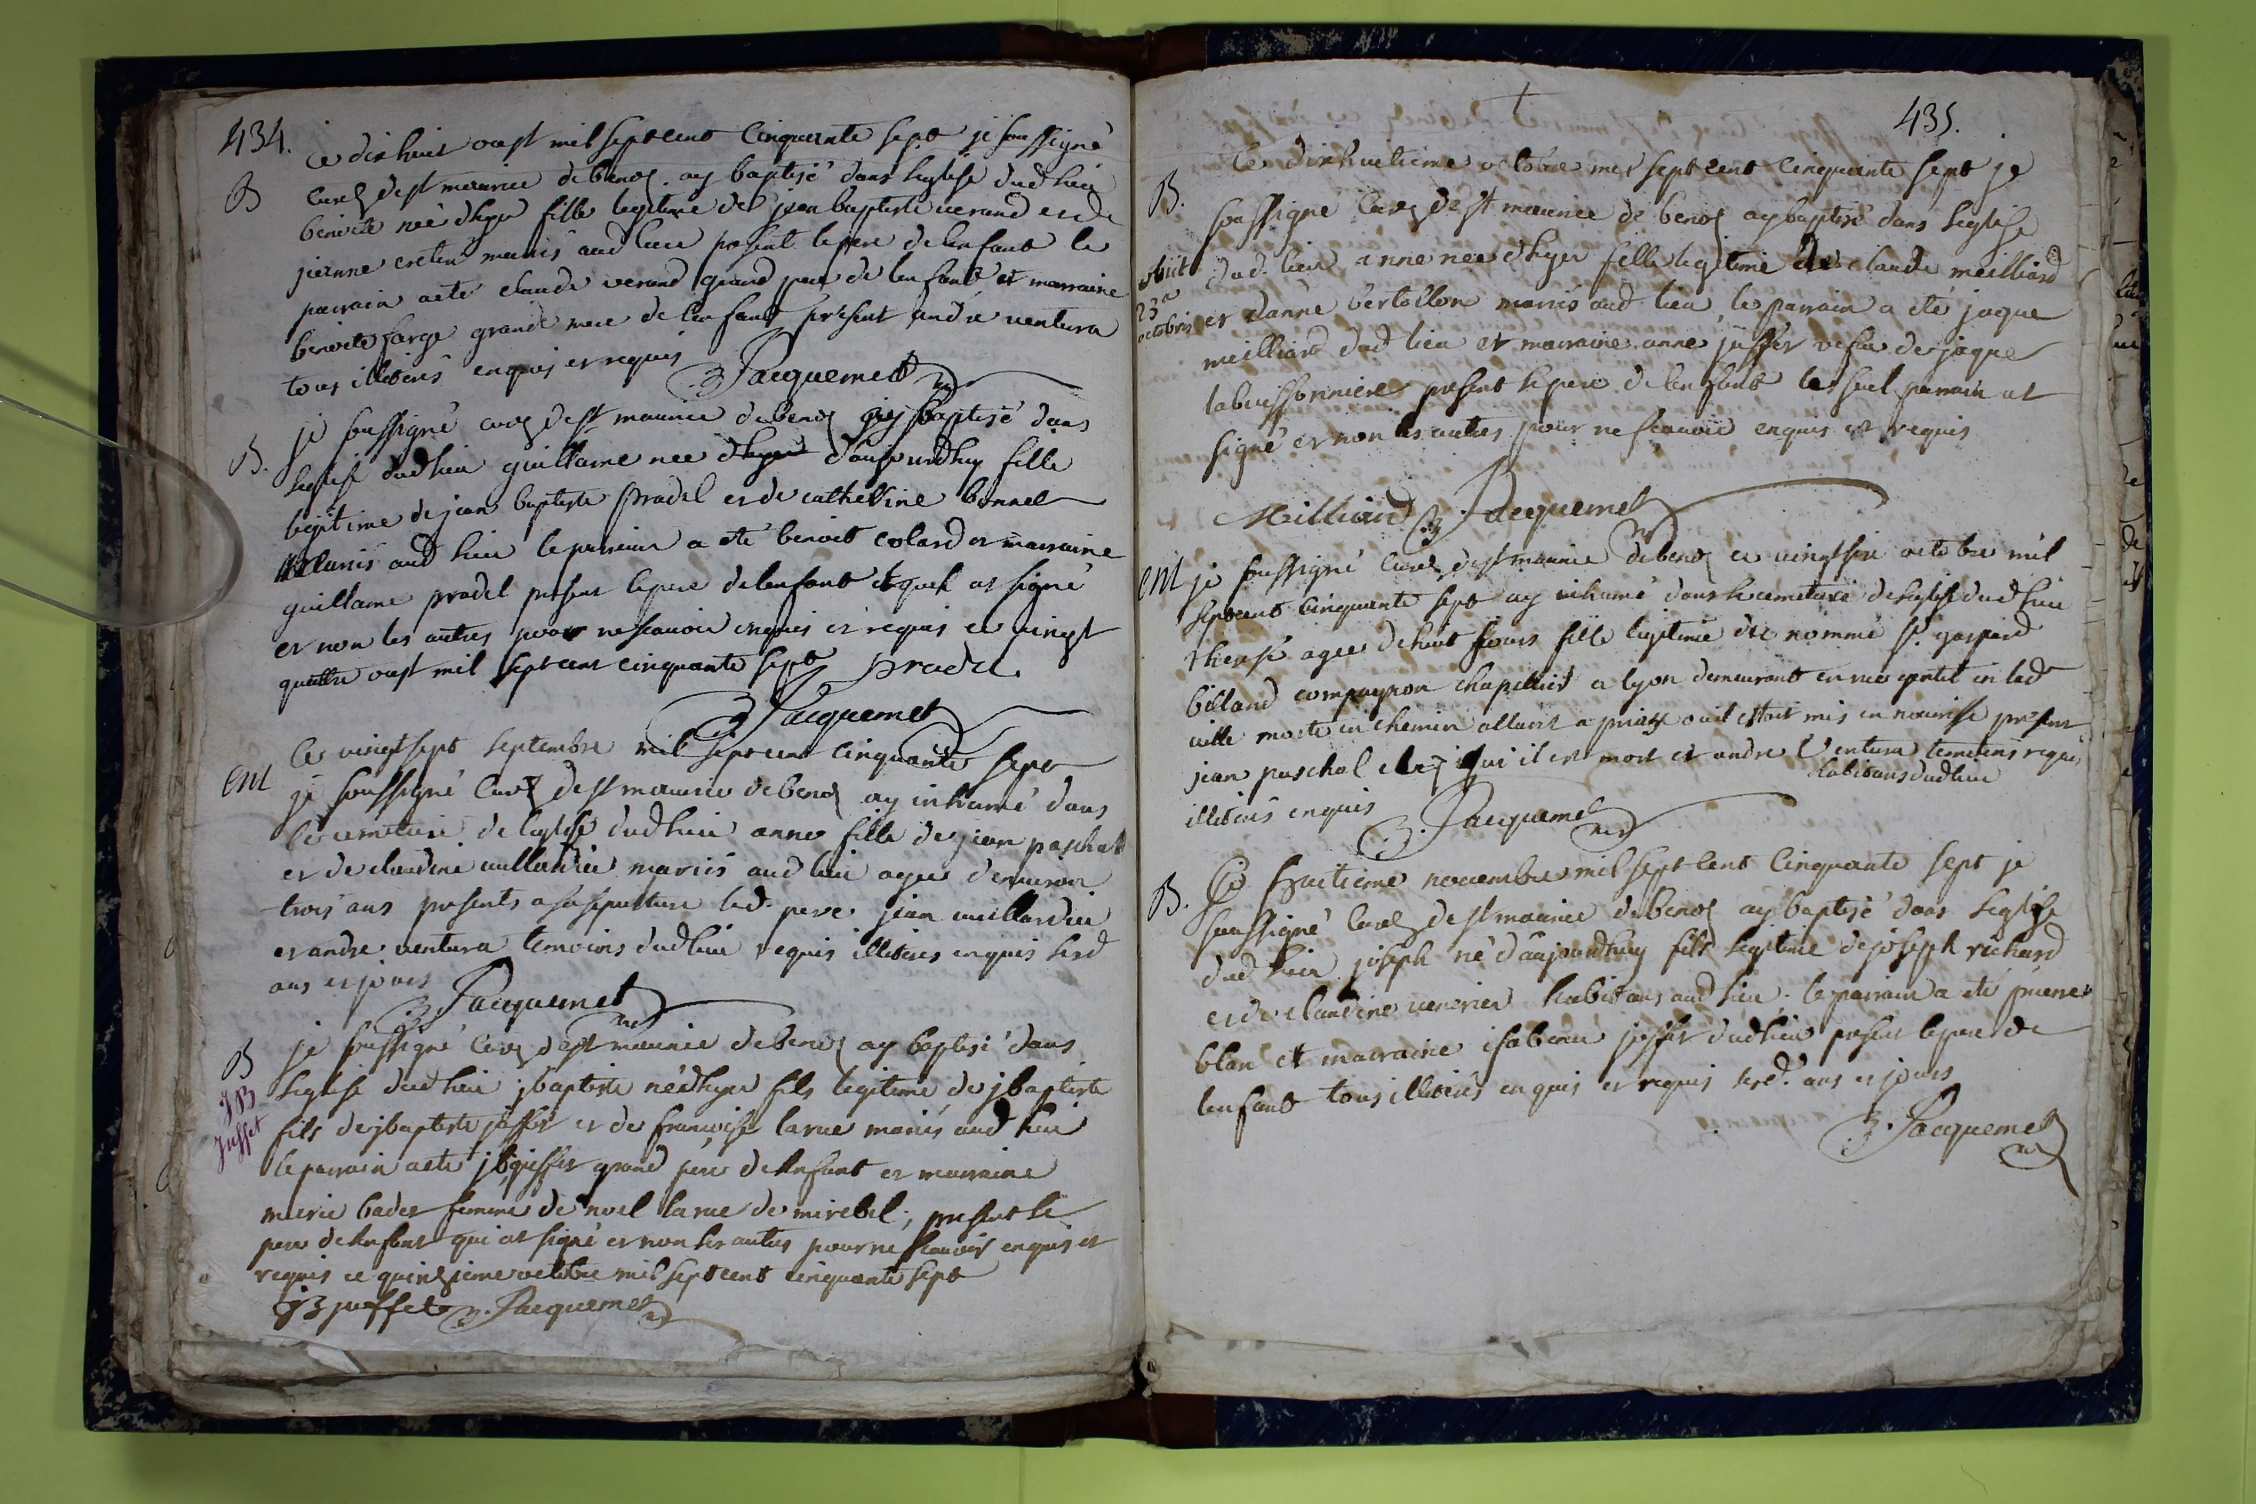 434.
ce dix huit oust mil sept cent Cinquante sept je soussigné
B
Curé de st maurice de benot ay baptisé dans leglise dud lieu
benoite née dhyer fille legitime de jean baptiste verand et de
jeanne cretin mariés aud lieu présent le pere de lenfant le
parrain a eté claude verand grand pere de lenfant et marraine
benoite farge grande mere de lenfant présent andré ventura
tous illiterés enquis et requis
B Jacquemet
B.
je soussigné curé de st maurice de benot ay baptisé dans
leglise dud lieu guillame née daujourdhuy fille
legitime de jean baptiste pradel et de catherine bonnet
mariés aud lieu le parrain a eté benoit colard et marraine
guillame pradel présent le pere de lenfant lequel at signé
et non les autres pour ne scauoir enquis et requis ce vingt
quattre oust mil sept cent cinquante sept pradel
B Jacquemet
ent
Ce vingt sept septembre mil sept cent cinquante sept
je soussigné Curé de st maurice de benot ay inhumé dans
le cemetiere de leglise dud lieu anne fille de jean paschal
et de claudine mariés aud lieu agée denuiron
trois ans presents a sa sepulture led. pere jean
et andre ventura temoins dud lieu requis illiterés enquis lesd
ans et jours
B. Jacquemet
B
je soussigné Curé de st maurice de benot ay baptisé dans
J B
Juffet
leglise dud lieu jbaptiste né dhyer fils legitime de jbaptiste
fils de jbaptiste juffet et de francoise larue mariés aud lieu
le parrain a eté jb juffet grand pere de lenfant et marraine
marie bader femme de noel larue de mirebel, present le
pere de lenfant qui at signé et non les autres pour ne scauoir enquis et
requis ce quinzieme octobre mil sept cent cinquante sept
jB juffet B. Jacquemet
435.
Ce dixhuitieme octobre mil sept cent cinquante sept je
B.
soussigné Curé de st maurice de benot ay baptisé dans leglise
obiit
dud. lieu anne née dhyer fille legitime de claude meilliard
23a
octobris
et danne bertollon mariés aud. lieu, le parrain a eté jaque
meilliard dud lieu et marraine anne juffet vefue de jaque
labuissonniere present le pere de lenfant le seul parrain at
signé et non les autres pour ne scauoir enquis et requis
Milliard B. Jacquemet
ent
je soussigné Curé de st maurice de benot ce vingt six octobre mil
sept cent cinquante sept ay inhumé dans le cemetiere de leglise dud lieu
therese agée de huit jours fille legitime de nommé sr. gaspard
billand compagnon chapellier a lyon demeurant en rue gentil en lad
ville morte en chemin allant a priay ou il estoit mis en nourisse présent
jean paschal chez qui il est mort et andre Ventura temoins requis
habitans dud lieu
illiterés enquis
B. Jacquemet
B.
Ce huitieme nouembre mil sept cent Cinquante sept je
soussigné Curé de st maurice de benot ay baptisé dans leglise
dud lieu joseph né daujourdhuy fils legitime de joseph richard
et de claudine venerier habitans aud lieu. le parrain a eté pierre
blan et marraine isabeau juffet dud lieu présent le pere de
lenfant tous illiterés enquis et requis lesd. ans et jours
B. Jacquemet